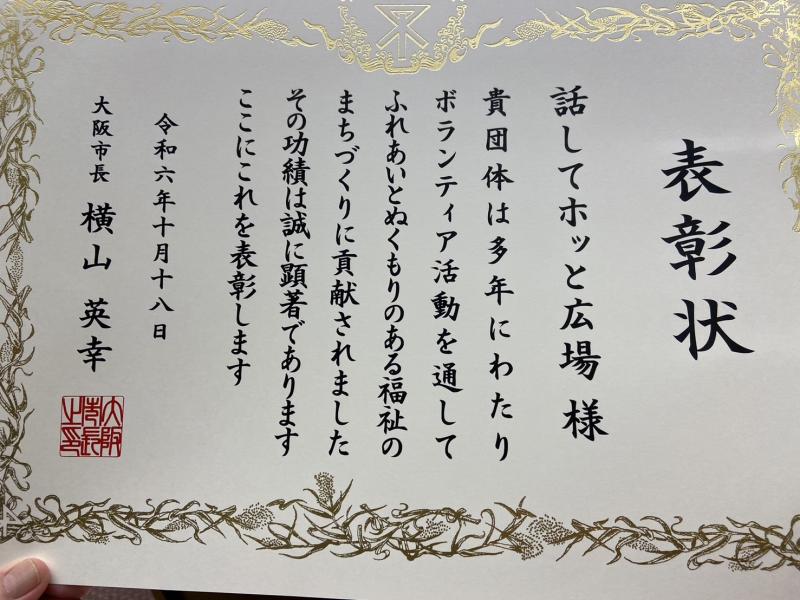 表彰状
話してホッと広場 様
貴団体は多年にわたり
ボランティア活動を通して
ふれあいとぬくもりのある福祉の
まちづくりに貢献されました
その功績は誠に顕著であります
ここにこれを表彰します
令和六年十月十八日
大阪市長 横山 英幸
大阪
市長
之印